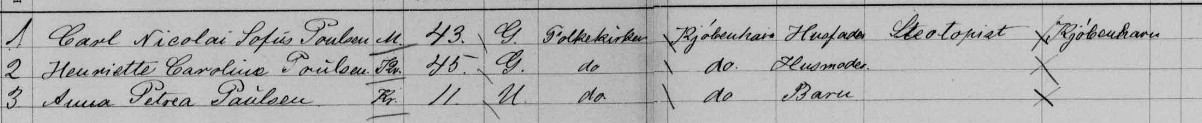 1 Carl Nicolai Sofus Poulsen M. 43. G. Folkekirken Kjóbenhavn Husfader Steotopist Kjóbenhavn
2 Henriette Caroline Poulsen Kv. 45. G. do do. Husmoder.
3 Anna Petrea Paulsen Kv. 11 U. do do Barn